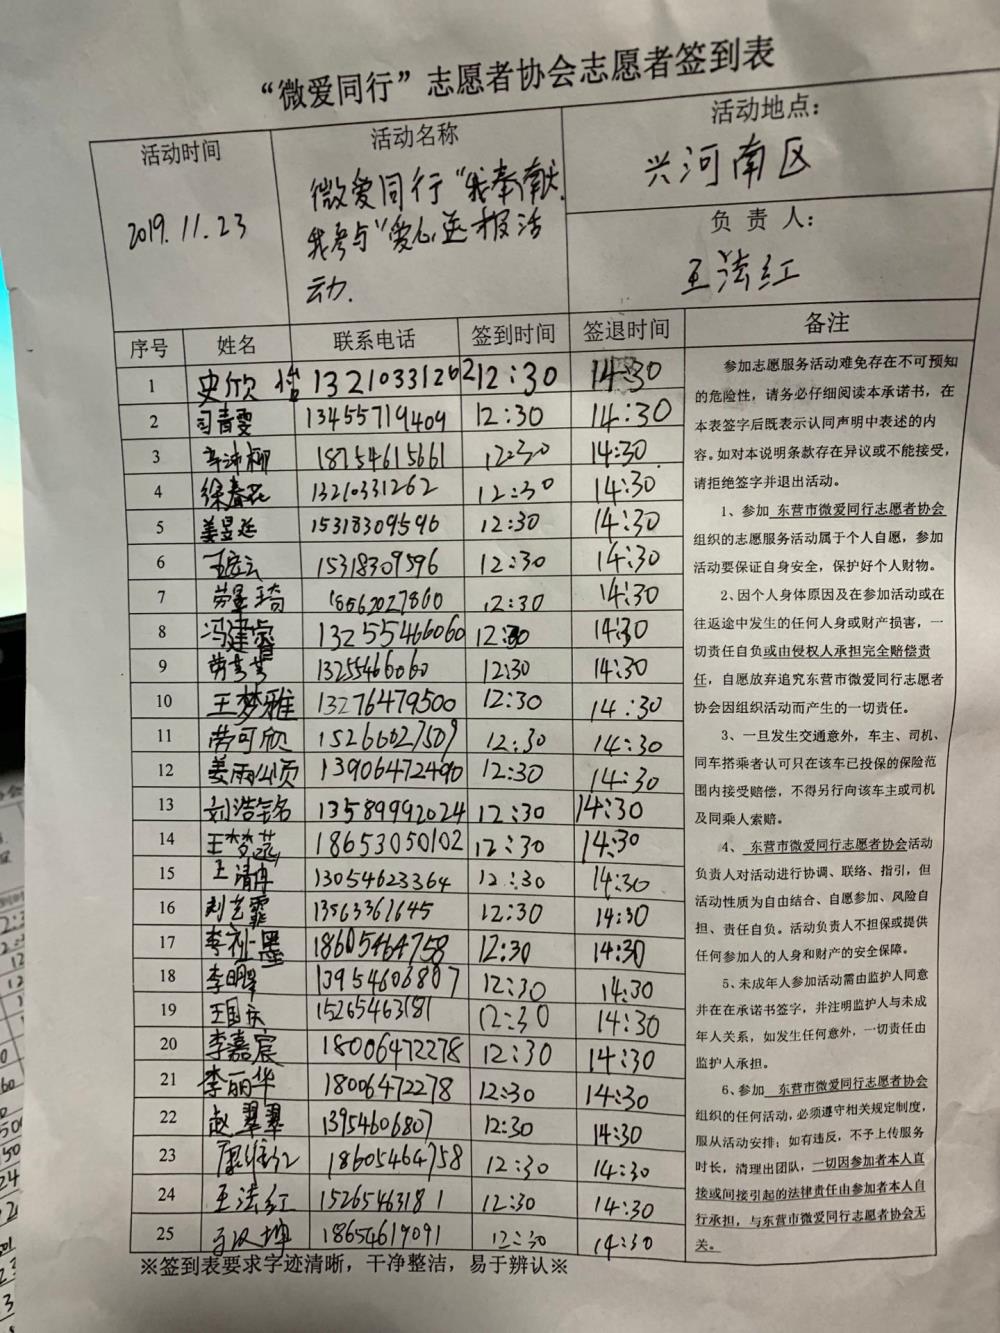 “微爱同行”志愿者协会志愿者签到表
活动时间
2019.11.23
活动名称
微爱同行“我奉献
我参与”爱心送报活
动.
活动地点：
兴河南区
负 责 人：
王法红
序号 姓名 联系电话 签到时间 签退时间 备注
1 史欣怡 13210331262 12:30 14:30
2 司青雯 13455719409 12:30 14:30
3 18754615661 12:30 14:30
4 徐春花 13210331262 12:30 14:30
5 姜昱延 15318309596 12:30 14:30
6 15318309596 12:30 14:30
7 18562027860 12:30 14:30
8 冯建睿 13255466060 12:30 14:30
9 13255466060 12:30 14:30
10 王梦雅 13276479500 12:30 14:30
11 劳可欣 15266027509 12:30 14:30
12 13906472490 12:30 14:30
13 刘浩铭 13589992024 12:30 14:30
14 18653050102 12:30 14:30
15 王清冉 13054623364 12:30 14:30
16 刘艺霏 13563361645 12:30 14:30
17 李祉墨 18605464758 12:30 14:30
18 13954606807 12:30 14:30
19 王国庆 15265463181 12:30 14:30
20 李嘉宸 18006472278 12:30 14:30
21 李丽华 18006472278 12:30 14:30
22 赵翠翠 13954606807 12:30 14:30
23 18605464758 12:30 14:30
24 王法红 15265463181 12:30 14:30
25 18654619091 12:30 14:30
参加志愿服务活动难免存在不可预知
的危险性，请务必仔细阅读本承诺书，在
本表签字后既表示认同声明中表述的内
容。如对本说明条款存在异议或不能接受，
请拒绝签字并退出活动。
1、参加 东营市微爱同行志愿者协会
组织的志愿服务活动属于个人自愿，参加
活动要保证自身安全，保护好个人财物。
2、因个人身体原因及在参加活动或在
往返途中发生的任何人身或财产损害，一
切责任自负或由侵权人承担完全赔偿责
任，自愿放弃追究东营市微爱同行志愿者
协会因组织活动而产生的一切责任。
3、一旦发生交通意外，车主、司机、
同车搭乘者认可只在该车已投保的保险范
围内接受赔偿，不得另行向该车主或司机
及同乘人索赔。
4、 东营市微爱同行志愿者协会活动
负责人对活动进行协调、联络、指引，但
活动性质为自由结合、自愿参加、风险自
担、责任自负。活动负责人不担保或提供
任何参加人的人身和财产的安全保障。
5、未成年人参加活动需由监护人同意
并在在承诺书签字，并注明监护人与未成
年人关系，如发生任何意外，一切责任由
监护人承担。
6、参加 东营市微爱同行志愿者协会
组织的任何活动，必须遵守相关规定制度，
服从活动安排；如有违反，不予上传服务
时长，清理出团队，一切因参加者本人直
接或间接引起的法律责任由参加者本人自
行承担，与东营市微爱同行志愿者协会无
关。
※签到表要求字迹清晰，干净整洁，易于辨认※